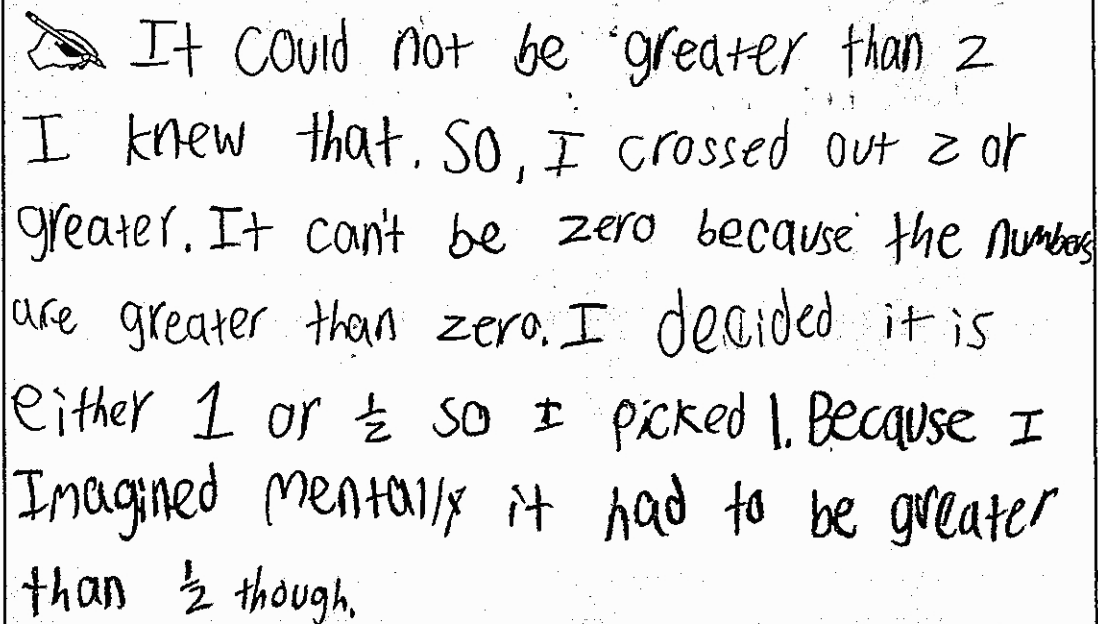 It could not be greater than 2
I knew that. So, I crossed out 2 or
greater. It can't be zero because the numbers
are greater than zero. I decided it is
either 1 or ½ so I picked 1. Because I
Imagined mentally it had to be greater
than ½ though.